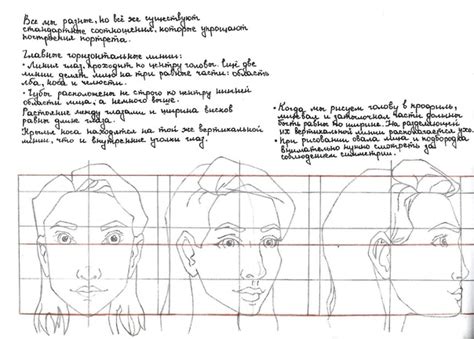 Все мы разные, но всё же существуют
стандартные соотношения, которые упрощают
построения портрета.
Главные горизонтальные линии:
• Линия глаз, проходит по центру головы. Ещё две
линии делят лицо на три равные части: область
лба, носа и челюсти.
• Губы расположены не строго по центру нижней
области лица, а немного выше.
Расстояние между глазами и ширина висков
равна длине глаза.
Крылья носа находятся на той же вертикальной
линии, что и внутренние уголки глаз.
• Когда мы рисуем голову в профиль,
лицевая и затылочная части должны
быть равны по ширине. На разделяющей
их вертикальной линии располагается ухо.
• При рисовании овала лица и подбородка
внимательно нужно смотреть за
соблюдением симметрии.